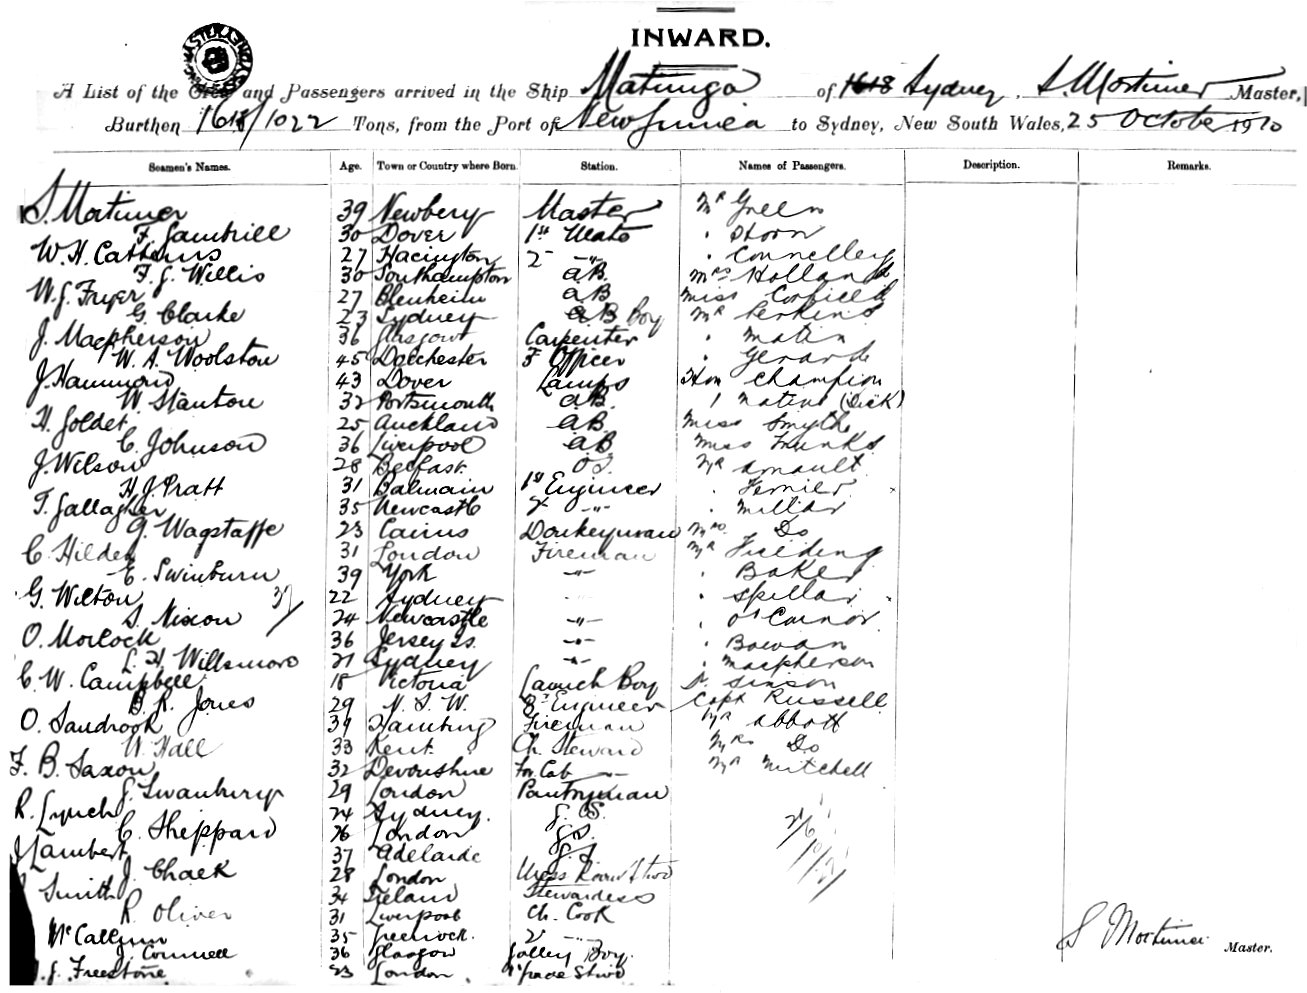 INWARD.
A List of the Crew and Passengers arrived in the Ship Matunga of 1618 Sydney, S. Mortimer Master,
Burthen 1618/1022 Tons, from the Port of New Guinea to Sydney, New South Wales, 25 October 1910
Seamen's Names. Age. Town or Country where Born. Station. Names of Passengers. Description. Remarks.
S. Mortimer 39 Newbery Master Mr Green
F. Gambrill 30 Dover 1st Mate . Thorn
W. H. Cathins 27 Hacington 2 -"- . Connelley
F. G. Willis 30 Southampton AB Mrs Holland
W. J. Fryer 27 Blenheim AB Miss Corfield
G. Clarke 23 Sydney Boy Mr Perkins
J. Macpherson 36 Glasgow Carpenter . Matin
W. A. Woolston 45 Dorchester F Officer . Gerard
J. Hammond 43 Dover Lamps Hon Champion
W. Stanton 32 Portsmouth AB. 1 native (Dick)
H. Golder 25 Auckland AB Miss Smythe
C. Johnson 36 Liverpool AB Miss Trunks
J. Wilson 28 Belfast OS. Mr Arnault
H. J. Pratt 31 Balmain 1st Engineer . Fernier
T. Gallagher 35 Newcastle 2 -"- . Millar
G. Wagstaffe 23 Cairns Donkeyman Mrs Do
C. Hilder 31 London Fireman Mr Fielding
E. Swinburn 39 York -"- . Baker
G. Wilton 37/ 22 Sydney . Spillar
S. Nixon 24 Newcastle -"- . O'Connor
O. Morlock 36 Jersey Is. -"- . Bowan
L. H. Willsmore 21 Sydney -"- . Macpherson
C. W. Campbell 18 Victoria Launch Boy Simson
B. R. Jones 29 N. S. W. 3d Engineer Capt Russell
O. Sandrook 39 Hamburg Fireman Mr Abbott
W. Hall 33 Kent Ch. Steward Mrs Do
F. B. Saxon 32 Devonshire For Cab -"- Mr Mitchell
J. Swanbury 29 London Pantryman
R. Lynch 24 Sydney. G. S.
C. Sheppard 26 London G.S.
J Lambert 37 Adelaide G. S
J. Chalk 28 London Mess Room Stwd
Smith 34 Ireland Stewardess
R. Oliver 31 Liverpool Ch. Cook
McCallum 35 Greenock. 2 -"-
J. Connell 36 Glasgow Galley Boy.
J. Freestone 23 London Stwd
S Mortimer Master.